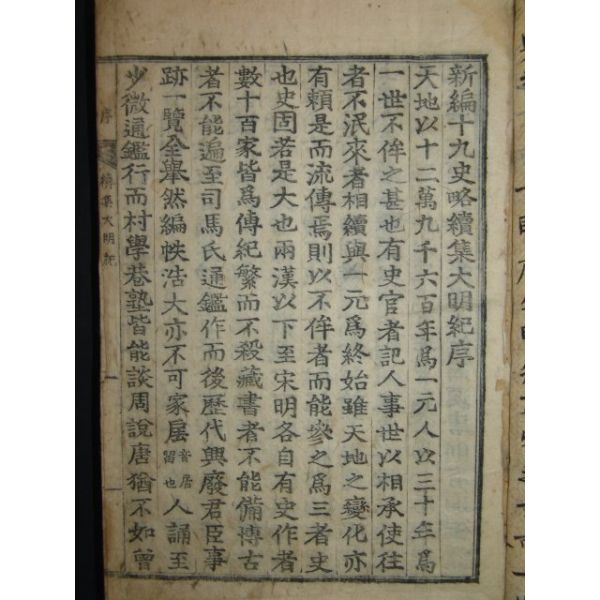 新編十九史略續集大明紀序
天地以十二萬九千六百年爲一元人以三十年爲
一世不侔之甚也有史官者記人事世以相承使往
者不泯來者相續與一元爲終始雖天地之變化亦
有賴是而流傳焉則以不侔者而能參之爲三者史
也史固若是大也兩漢以下至宋明各自有史作者
數十百家皆爲傳紀繁而不殺藏書者不能備博古
者不能遍至司馬氏通鑑作而後歷代興廢君臣事
跡一覽全擧然編帙浩大亦不可家㞐音居留也人誦至
少微通鑑行而村學巷塾皆能談周說唐猶不如曾
序
續集大明紀